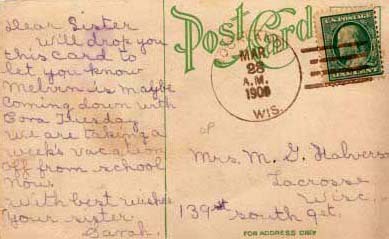 Dear Sister
Will drop you
this card to
let you know
Melvin is maybe
coming down with
Cora Tuesday
we are taking a
weeks vacation
off from school
now.
With best wishes
Your sister
Sarah.
Post Card
MAR
23
A.M.
1909
WIS.
U.S. POSTAGE
Mrs. M. G. Halverson
Lacrosse
Wisc.
139 south 9st.
FOR ADDRESS ONLY